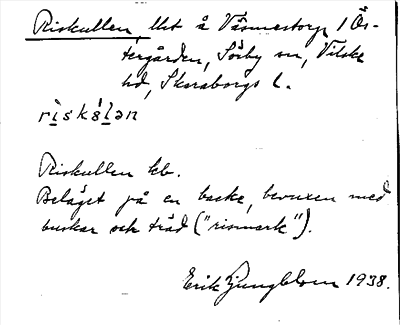 Riskullen, lht å Väsmestorp 1 Ös-
tergården, Sörby sn, Vilske
hd, Skaraborgs l.
riskálan
Riskullen kb.
Beläget på en backe, bevuxen med
buskar och träd ("rismark").
Erik Ljungblom 1938.